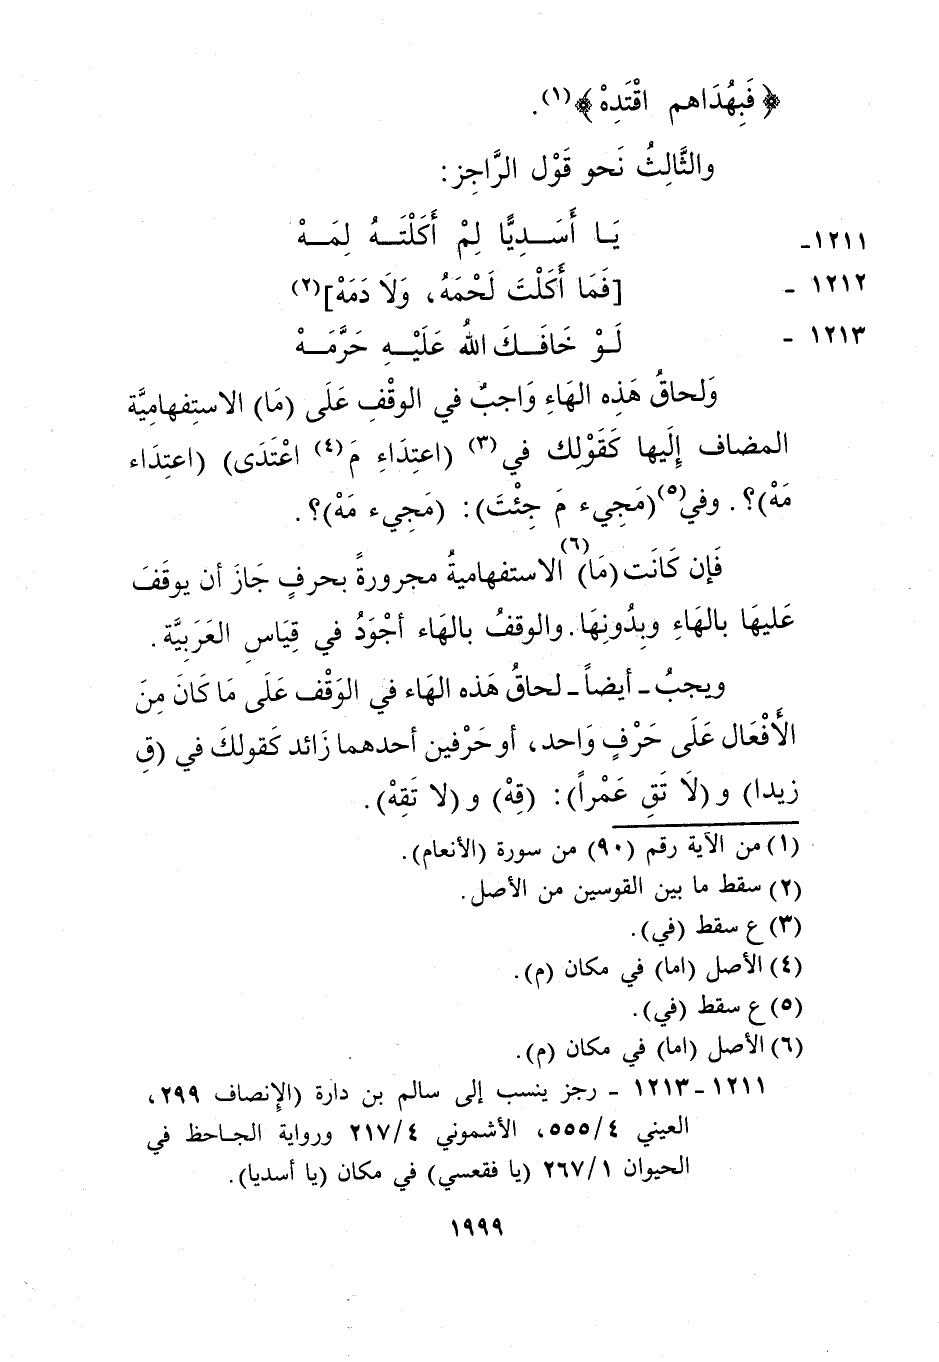 ﴿فَبِهُدَاهم اقْتَدِهْ﴾(١).
والثَّالِثُ نَحو قَوْل الرَّاجِز:
١٢١١- يَـا أَسَـدِيًّا لِمْ أَكَلْتَـهُ لِمَـهْ
١٢١٢ - [فَمَا أَكَلْتَ لَحْمَهُ، وَلَا دَمَهْ](٢)
١٢١٣ - لَـوْ خَافَـكَ اللهُ عَلَيْـهِ حَرَّمَـهْ
وَلحاقُ هَذِه الهَاءِ وَاجبٌ في الوقْفِ عَلَى (مَا) الاستِفهامِيَّة
المضاف إِلَيها كَقَوْلِك في(٣) (اعتِدَاءِ مَ(٤) اعْتَدَى) (اعتِدَاء
مَهْ)؟. وفي(٥)(مَجِيء مَ جِئْتَ): (مَجِيء مَهْ)؟.
فَإن كَانَت (مَا)(٦) الاستفهاميةُ مجرورةً بحرفٍ جَازَ أن يوقَفَ
عَليهَا بالهَاءِ وبِدُونِهَا. والوقفُ بالهَاء أجْوَدُ في قِيَاسِ العَرَبِيَّة.
ويجبُ - أيضاً - لحاقُ هَذه الهَاء في الوَقْف عَلَى مَا كَانَ مِنَ
الأَفْعَال عَلَى حَرْفٍ وَاحد، أو حَرْفين أحدهما زَائد كَقولكَ في (قِ
زيدا) و (لَا تَقِ عَمْراً): (قِهْ) و (لا تَقِهْ).
(١) من الآية رقم (٩٠) من سورة (الأنعام).
(٢) سقط ما بين القوسين من الأصل.
(٣) ع سقط (في).
(٤) الأصل (اما) في مكان (م).
(٥) ع سقط (في).
(٦) الأصل (اما) في مكان (م).
١٢١١ - ١٢١٣ - رجز ينسب إلى سالم بن دارة (الإنصاف ٢٩٩،
العيني ٥٥٥/٤، الأشموني ٢١٧/٤ ورواية الجـاحظ في
الحيوان ٢٦٧/١ (يا فقعسي) في مكان (يا أسديا).
١٩٩٩